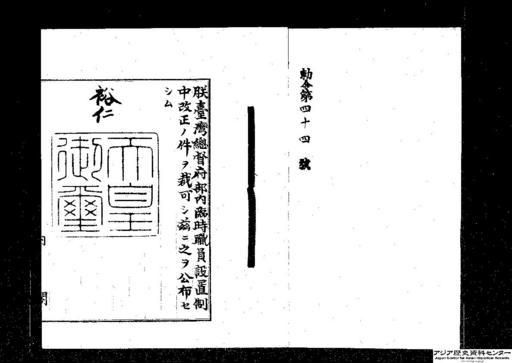 勅令第四十四號
朕臺灣總督府部內臨時職員設置制
中改正ノ件ヲ裁可シ茲ニ之ヲ公布セ
シム
裕仁
天皇
御璽
内閣
アジア歴史資料センター
Japan Center for Asian Historical Records